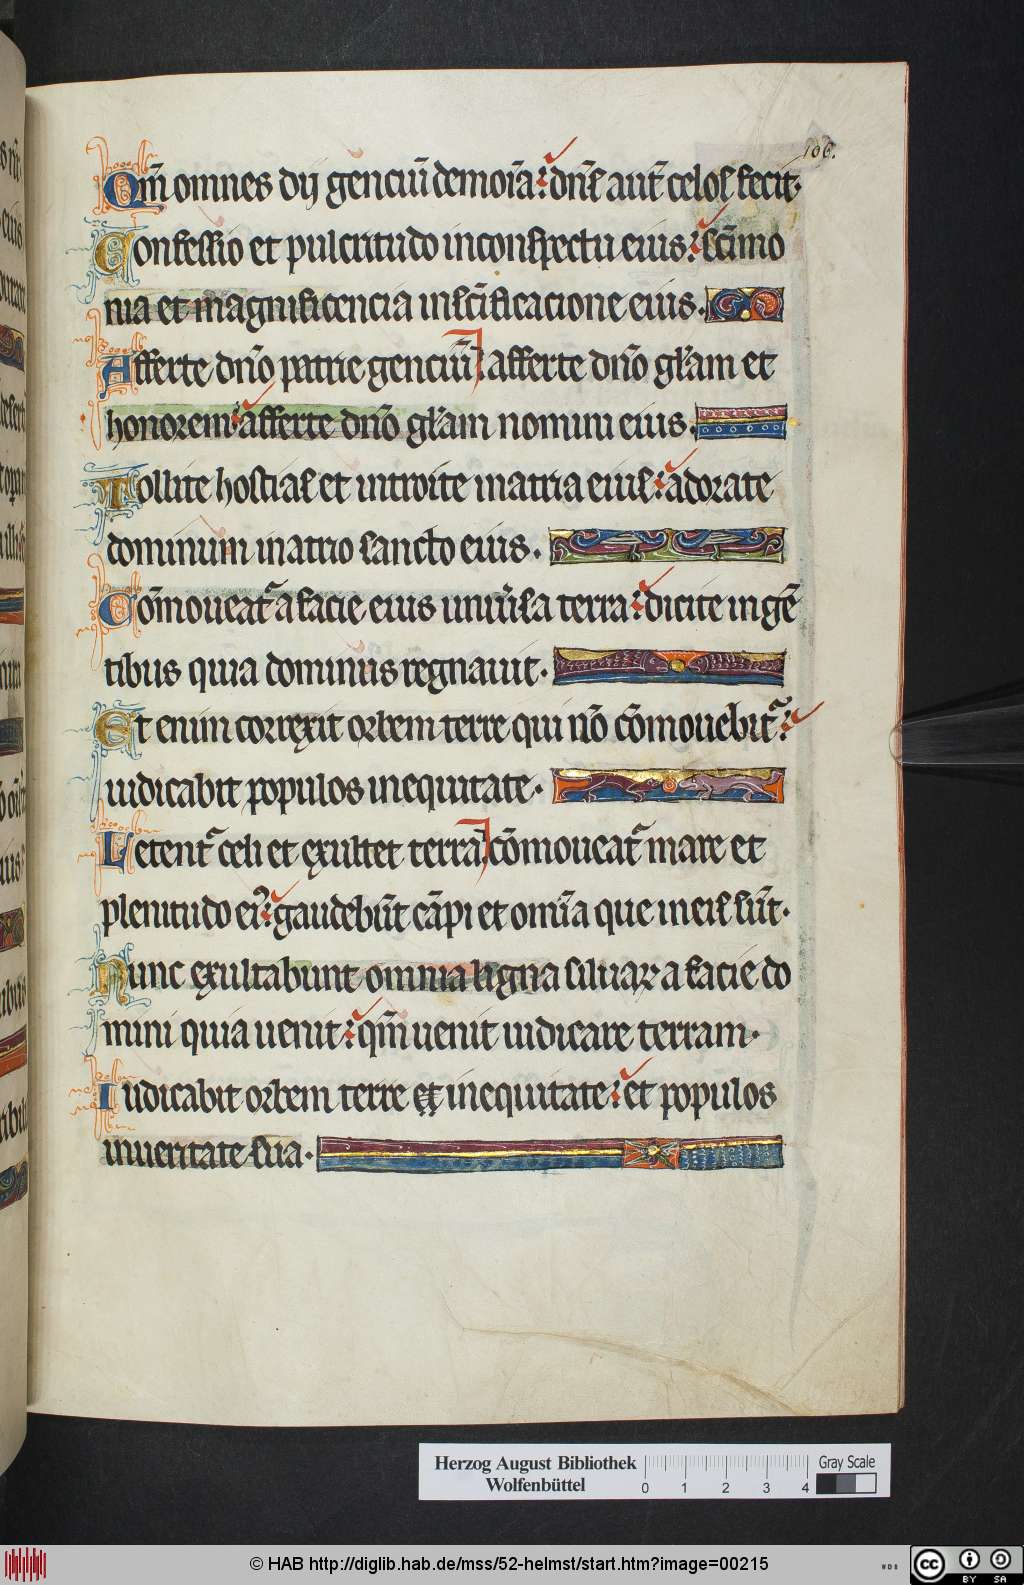 106.
Qm̄ omnes dij genciū demoīa: dn̄s aut̄ celos fecit.
Confessio et pulcritudo inconspectu eius: scīmo
nia et magnificencia inscīficacione eius.
Afferte dn̄o patrie genciū afferte dn̄o gl̄am et
honorem: afferte dn̄o gl̄am nomini eius.
Tollite hostias et introite inatria eius: adorate
dominum inatrio sancto eius.
Cōmoueat᷑ a facie eius uniūsa terra: dicite ingē
tibus quia dominus regnauit.
Et enim correxit orbem terre qui nō cōmouebit᷑:
iudicabit populos inequitate.
Letent᷑ celi et exultet terra cōmoueat᷑ mare et
plenitudo ei᷒: gaudebūt cāpi et omīa que ineis sūt.
Nunc exultabunt omnia ligna siluaꝝ a facie do
mini quia uenit: qm̄ uenit iudicare terram.
Iudicabit orbem terre inequitate: et populos
inueritate sua.
Herzog August Bibliothek
Wolfenbüttel
0 1 2 3 4
Gray Scale
© HAB http://diglib.hab.de/mss/52-helmst/start.htm?image=00215
cc BY SA